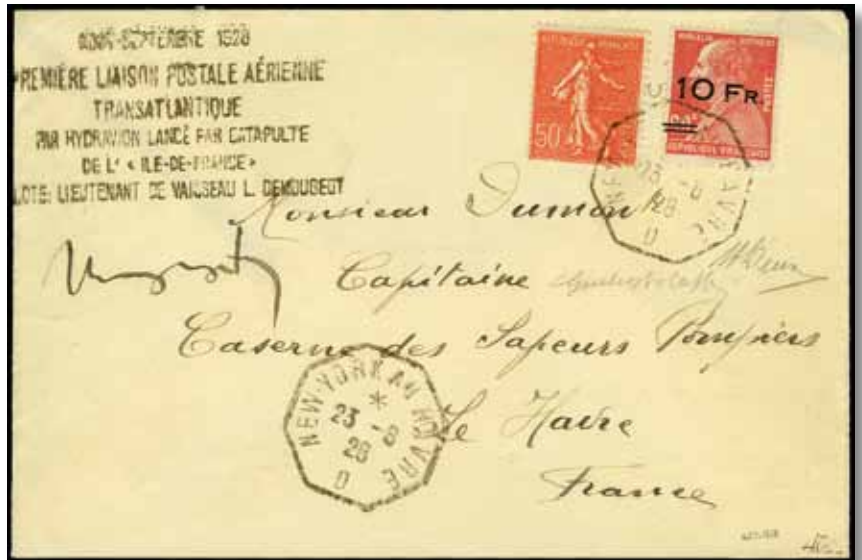 AOUT-SEPTEMBRE 1928
PREMIÈRE LIAISON POSTALE AÉRIENNE
TRANSATLANTIQUE
PAR HYDRAVION LANCÉ PAR CATAPULTE
DE L' « ILE-DE-FRANCE »
LOTE: LIEUTENANT DE VAISSEAU L. DEMOUGEOT
50
REPUBLIQUE FRANÇAISE
10 FR.
NEW-YORK AU HAVRE
23 -8
28
D
Monsieur Dumont
Capitaine
Caserne des Sapeurs Pompiers
Le Havre
France
NEW-YORK AU HAVRE
*
23 -8
28
D